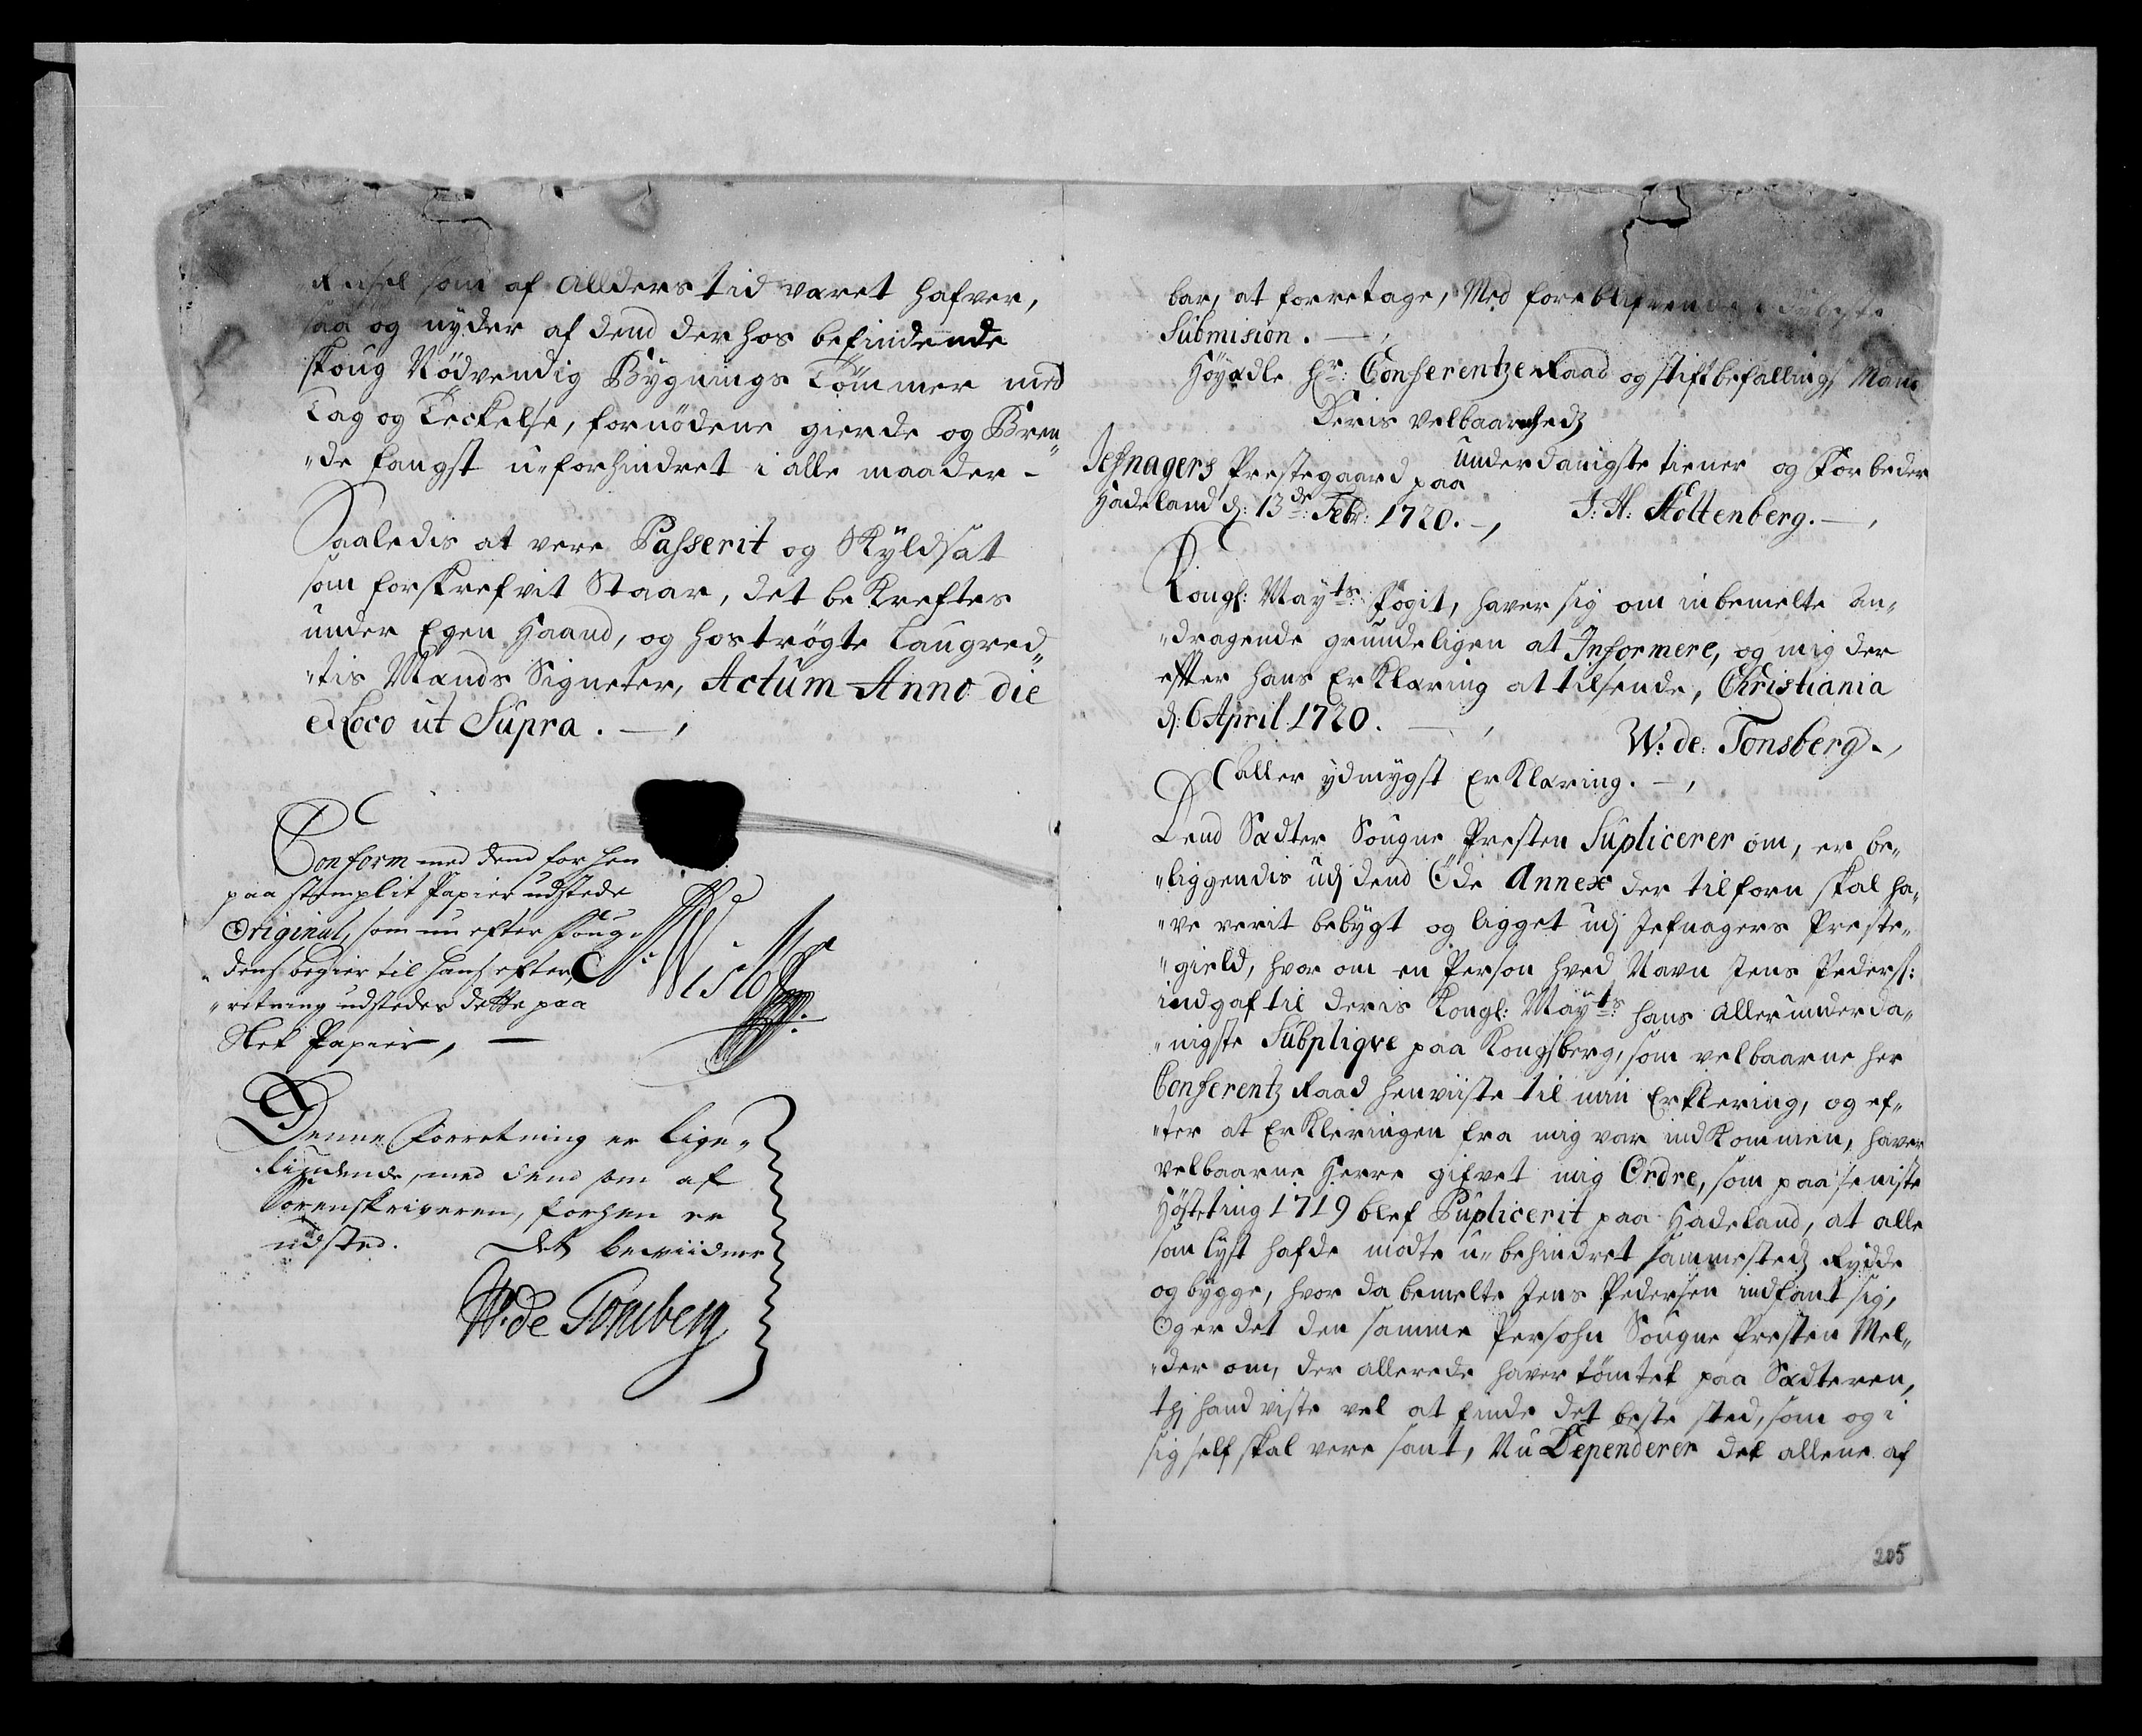 som af Allders tid været hafver,
saa og nyder af dend derhos befindende
skoug Nödvendig Bygnings Tömmer med
Tag og Teckelse, fornödene gierde og Bren„
„de fangst u-forhindret i alle maader –
Saaledis at vere Passerit og Skyldsat
som forskrefvit Staar, det bekreftes
under Egen Haand, og hoströgte Laugred„
„tis Mænds Signeter, Actum Anno die
et Loco ut Supra. —,
Conform med dend forhen
paa stemplit Papier udstede
Original, som nu efter Foug„
dens begier til hans efter„
„retning udstedes dette paa
Slet Papier, —
Denne Forretning er lige„
lÿdende, med dend som af
Sorenskriveren, forhen er
udsted. Det beviidner
W: de Tonsberg
bar, at forretage, Med foreblifvende
Submision. —,
Höyædle Hr: Conferentze Raad og Stiftbefallings Mand
Deris Velbaarenhedz
underdanigste tiener og Forbeder
Jefnagers Prestegaard paa
Hadeland d: 13de Febr: 1720. —, J. H: Stoltenberg. —,
Kongl: Mayts: Fogit, haver sig om inbemelte an„
„dragende grundeligen at Informere, og mig der
efter hans Erklæring at tilsende, Christiania
d: 6 April 1720. —,
W: de: Tonsberg.,
Aller ydmygst Erklæring. —,
Dend Sædter Sougne Presten Suplicerer om, er be„
„liggendis udj dend Öde Annex der tilforn skal ha„
„ve verit bebygt og ligget udj Jefnagers Preste„
„gield, hvor om en Person hved Navn Jens Peders:
indgaf til deris Kongl: Mayts: hans allerunderda„
„nigste Subpliqve paa Kongsberg, som velbaarne Her
Conferentz Raad henviiste til min Erklering, og ef„
„ter at Erkleringen fra mig var indkommen, haver
velbaarne Herre gifvet mig Ordre, som paa seniste
Hösteting 1719 blef Puplicerit paa Hadeland, at alle
som lyst hafde motte u-behindret sammestedz Rydde
og bygge, hvor da bemelte Jens Pedersen indfant sig,
Og er det den samme Persohn Sougne Presten Mel„
„der om, der allerede haver tömtet paa Sædteren,
thj hand viste vel at finde det beste sted, som og i
sig self skal vere sant, Nu Dependerer det allene af
205